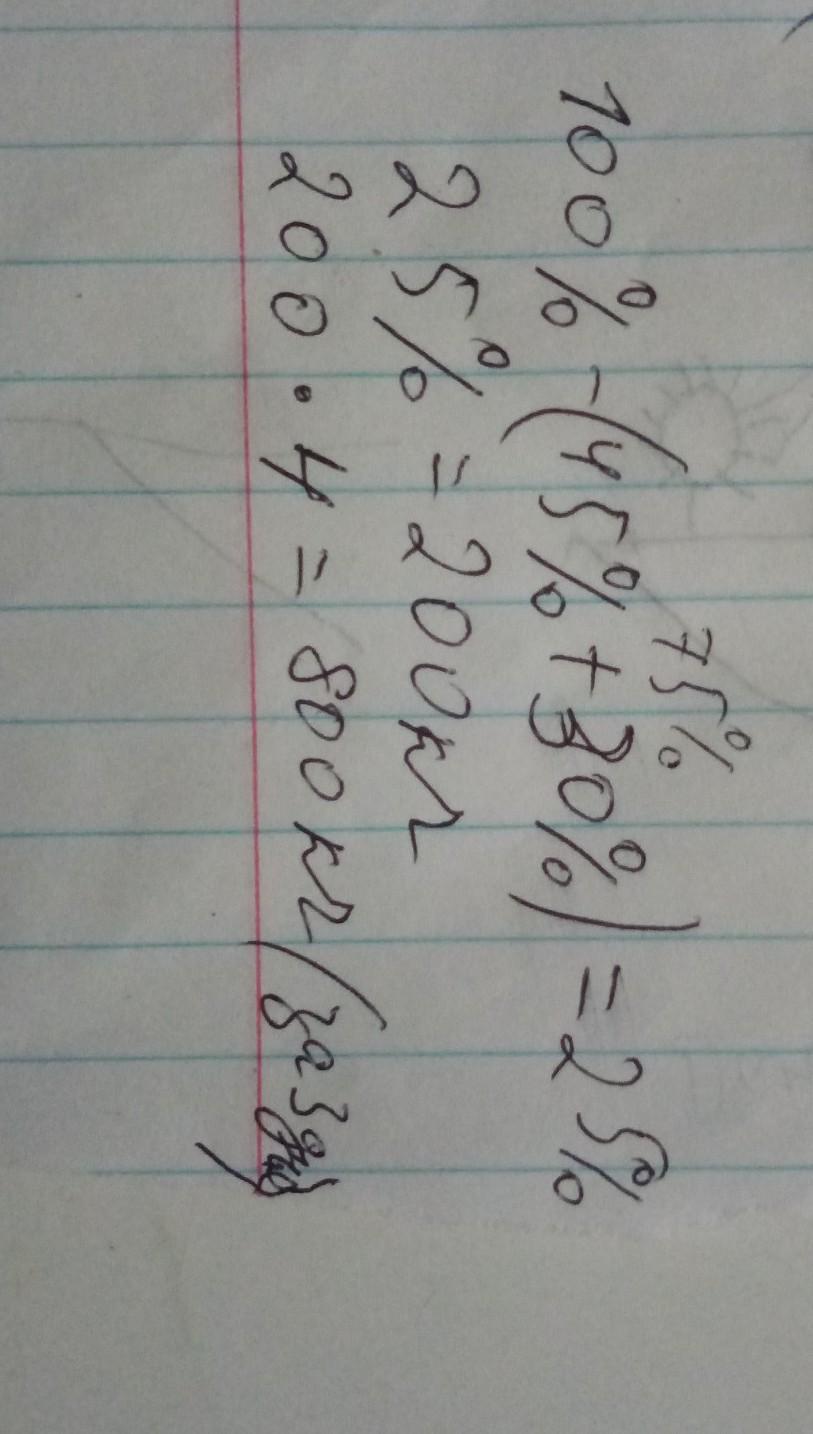 75%
100% - (45% + 30%) = 25%
25% = 200кг
200 · 4 = 800кг (за 3